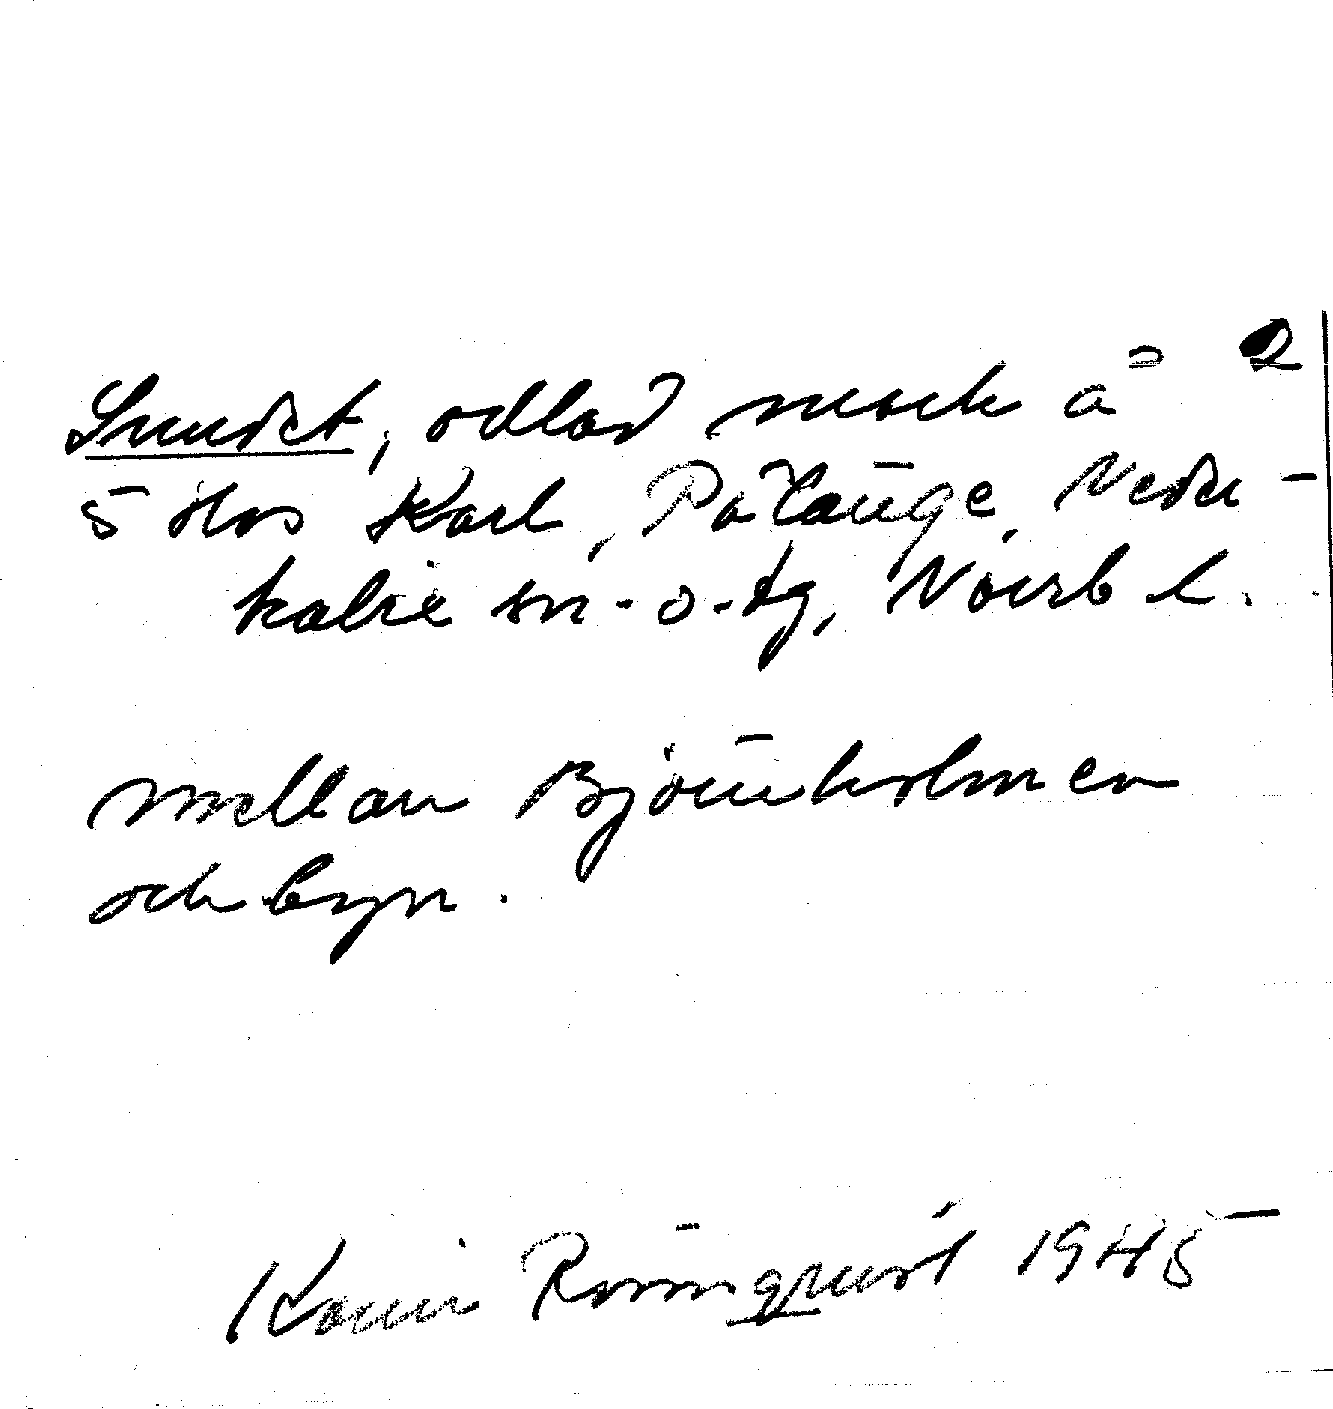 2
Sundet, odlad mark å
5 Hos Karl, Pålänge, Neder-
kalix sn. o. tg, Norrb l.
mellan Björnholmen
och byn.
Karin Rönnqvist 1945